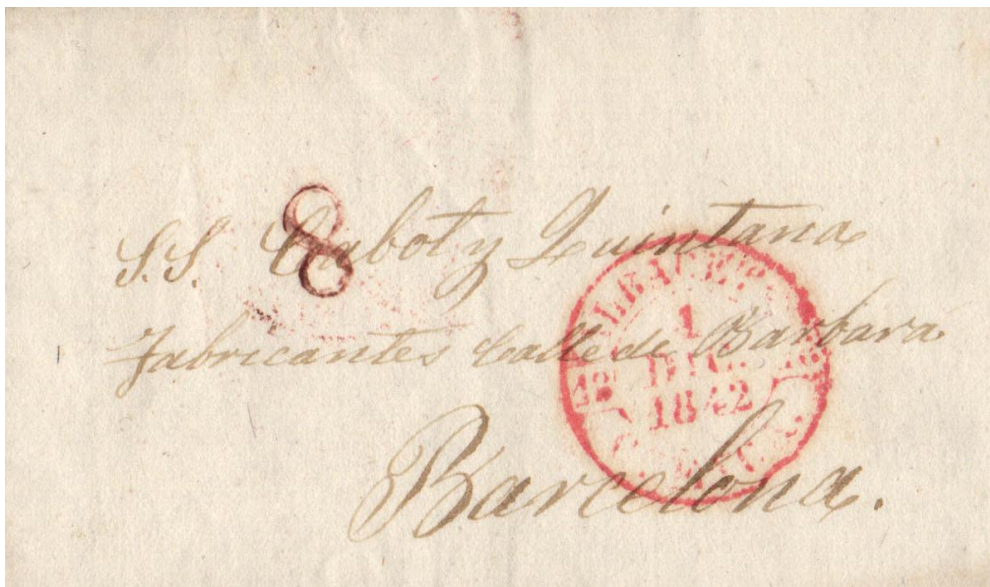 8
S.S. Cabot y Quintana
Fabricantes Calle de Barbara
Barcelona.
ALBACETE
1
DIC.
1842